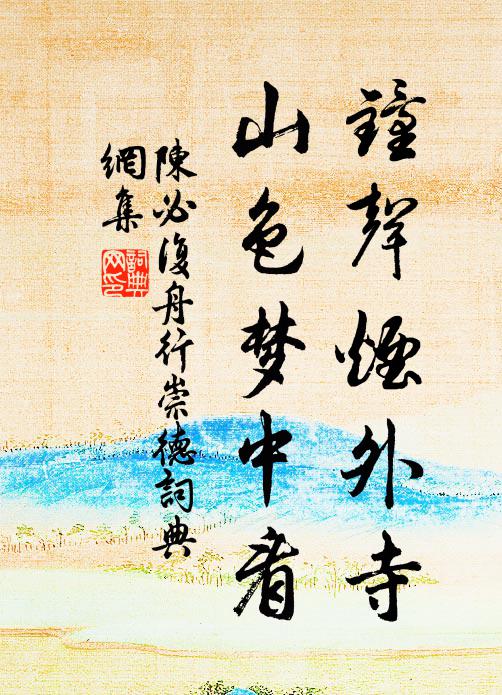 鐘聲煙外寺
山色梦中看
陳必復舟行崇德詞典
網集
詞典
网印